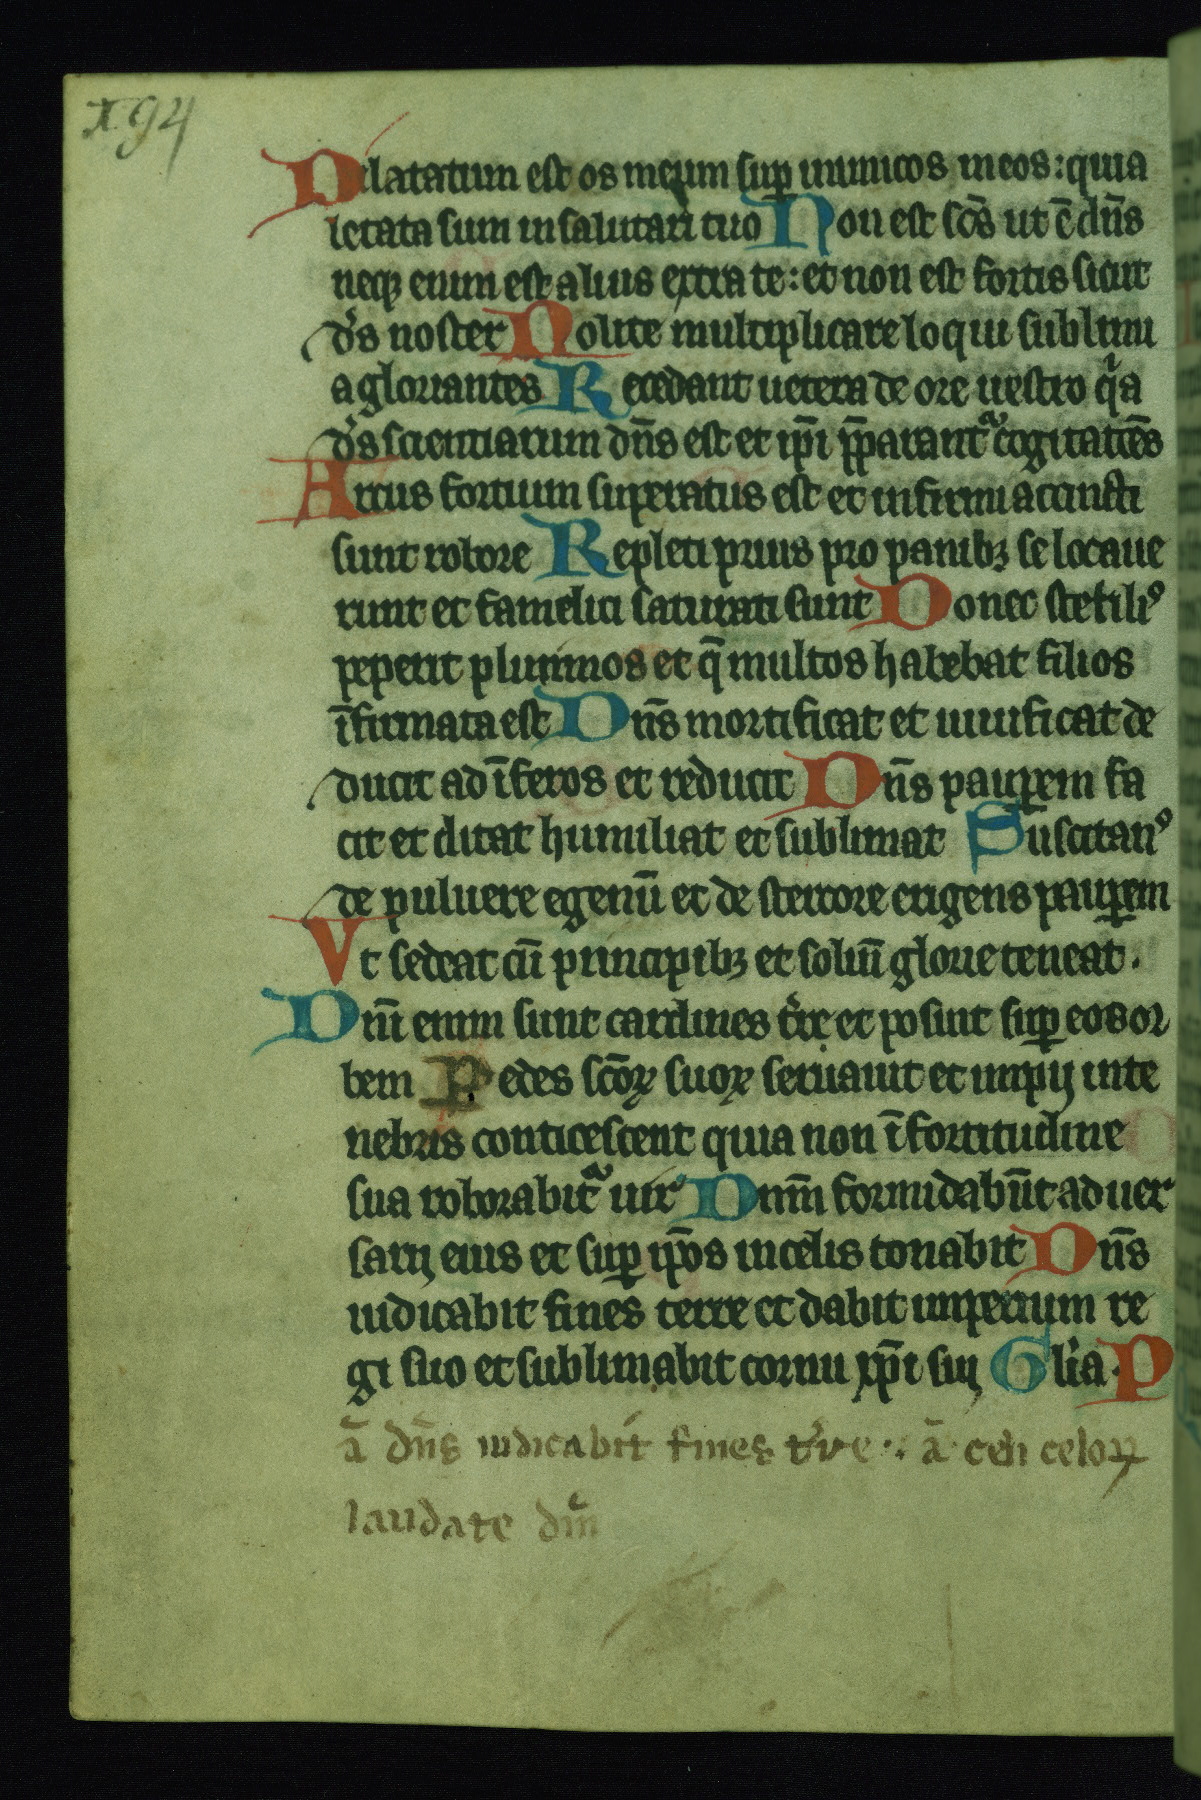 X 94
Dilatatum est os meum sup̱ inimicos meos: quia
letata sum in salutari tuo Non est sc̄s ut ē dn̄s
neqꝫ enim est alius extra te: et non est fortis sicut
d̄s noster Nolite multiplicare loqui sublimi
a gloriantes Recedant uetera de ore uestro qͥa
d̄s scientiarum dn̄s est et ip̄i p̄parantᷓ cogitatiōes
Arcus fortium superatus est et infirmi accincti
sunt robore Repleti prius pro panibꝫ se locaue
runt et famelici saturati sunt Donec sterilꝰ
peperit plurimos et q̄ multos habebat filios
īfirmata est Dn̄s mortificat et uiuificat de
ducit ad īferos et reducit Dn̄s paup̱em fa
cit et ditat humiliat et sublimat Suscitanꝰ
de puluere egenū et de stercore erigens paup̱em
Vt sedeat cū principibꝫ et soliū glorie teneat.
Dn̄i enim sunt cardines t̄re et posuit sup̱ eos or
bem Pedes sc̄oꝝ suoꝝ seruauit et impij in te
nebris conticescent quia non ī fortitudine
sua roborabitᷓ uir Dnm̄ formidabūt aduer
sarij eius et sup̱ ip̄os in celis tonabit Dn̄s
iudicabit fines terre et dabit imperium re
gi suo et sublimabit cornu xp̄i sui Gl̄ia. P
ā dn̄s iudicabit fines t̄re ∴ ā celi celoꝝ
laudate dm̄